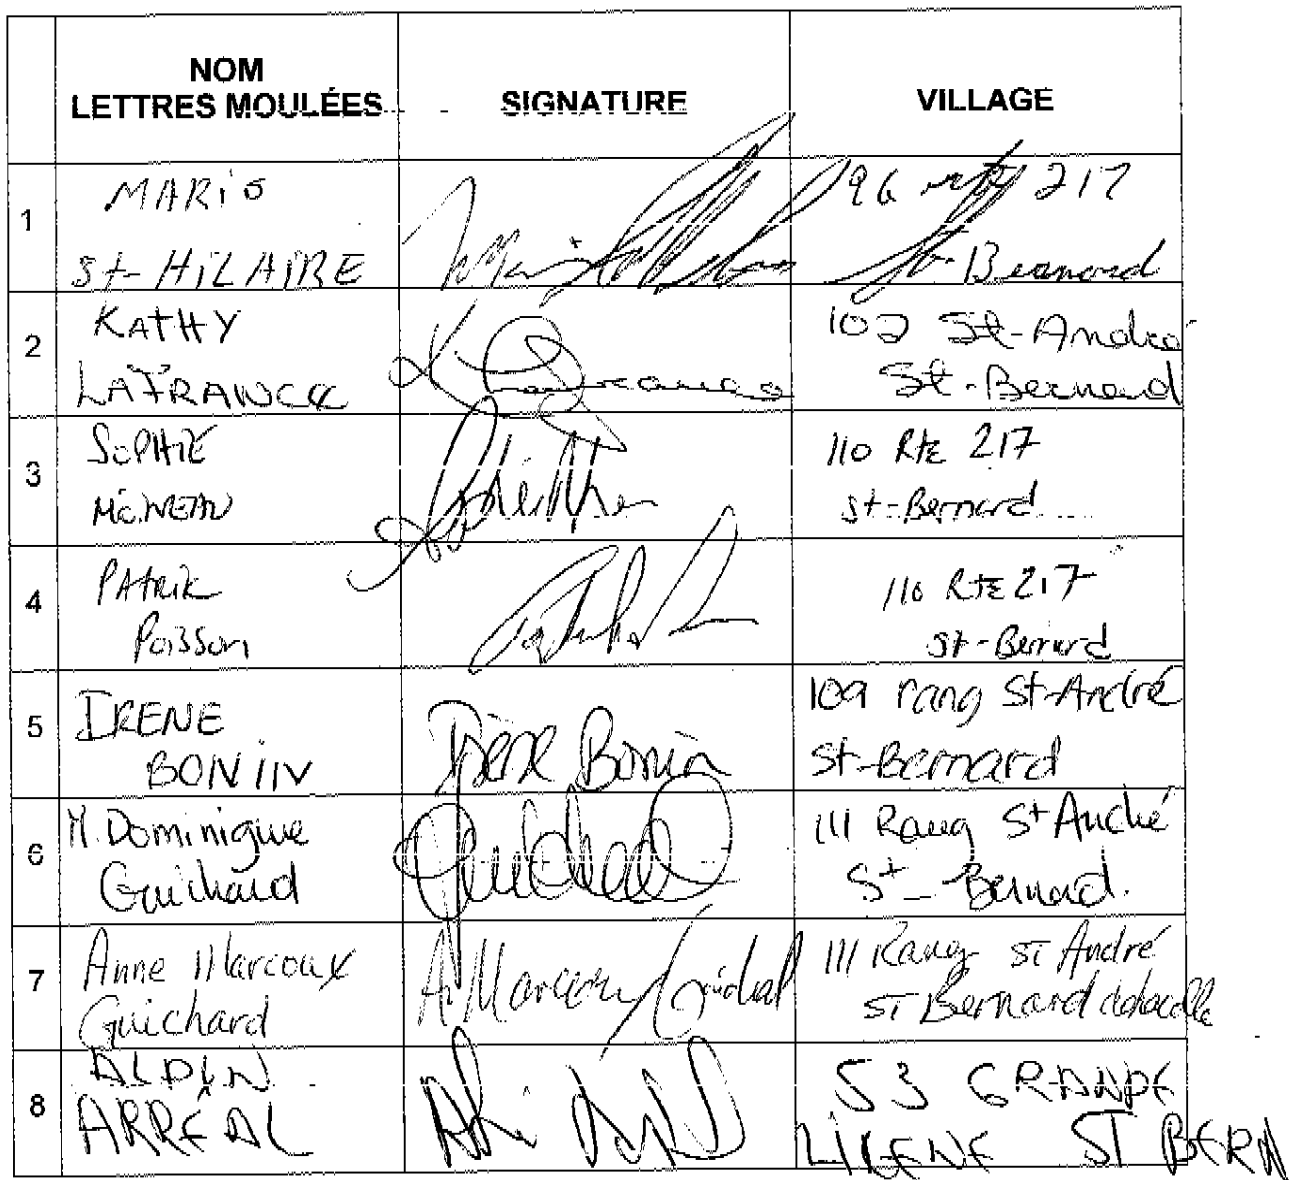 NOM
LETTRES MOULÉES
SIGNATURE
VILLAGE
1
MARIO
St-HILAIRE
96 rte 217
St-Bernard
2
KATHY
LAFRANCE
102 St-André
St-Bernard
3
SOPHIE
110 Rte 217
St-Bernard
4
PATRIK
Poisson
110 RTE 217
St-Bernard
5
IRENE
BONIN
Irène Bonin
109 rang St-André
St-Bernard
6
M. Dominique
Guichard
Guichard
111 Rang St André
St-Bernard.
7
Anne Marcoux
Guichard
A. Marcoux/Guichard
111 Rang ST André
ST Bernard de Lacolle
8
ARRÉAL
53 GRANDE
LIGENE ST BERN